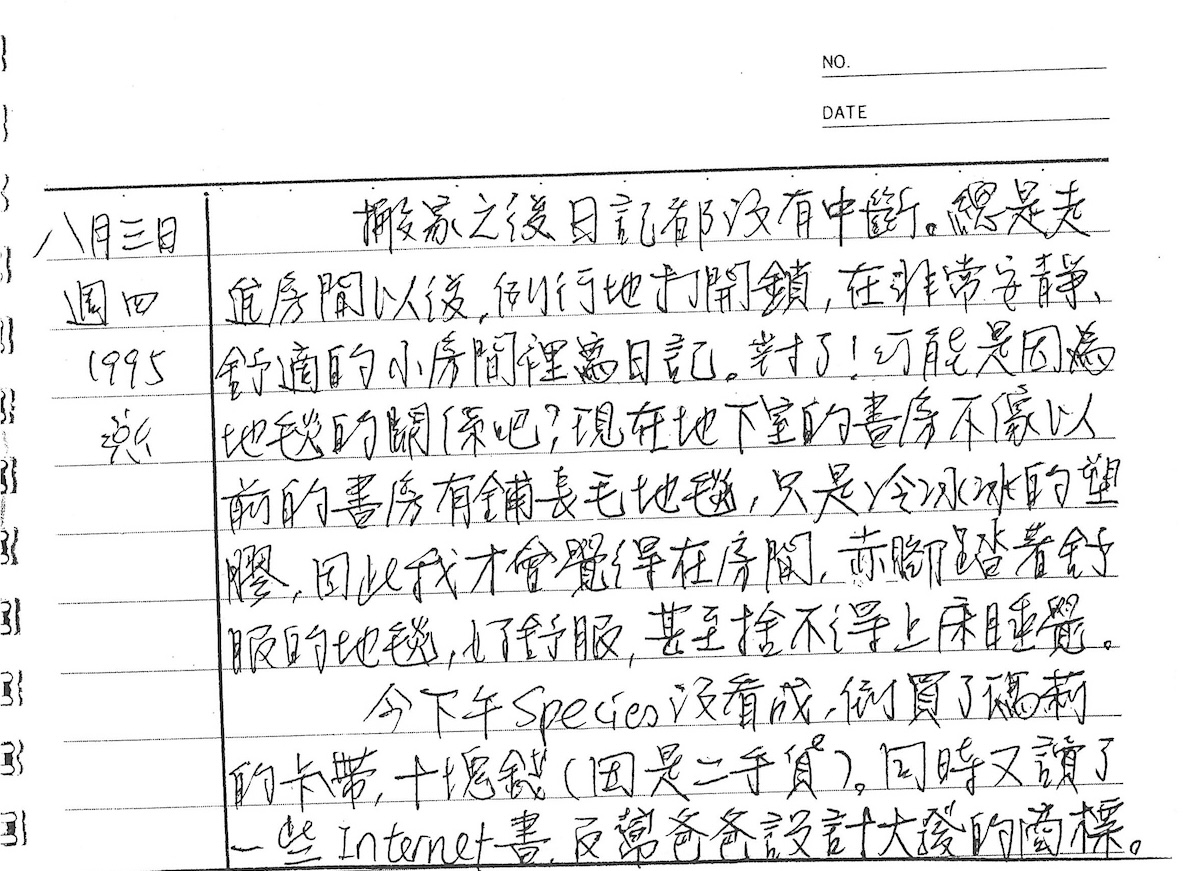 NO.
DATE
八月三日
週四
1995
搬家之後日記都沒有中斷。總是走
進房間以後，例行地打開鎖，在非常安靜、
舒適的小房間裡寫日記。對了！可能是因為
地毯的關係吧？現在地下室的書房不像以
前的書房有鋪長毛地毯，只是冷冰冰的塑
膠，因此我才會覺得在房間，赤腳踏著舒
服的地毯，好舒服，甚至捨不得上床睡覺。
今下午Species沒看成，倒買了瑪莉
的卡帶，十塊錢（因是二手貨）。同時又讀了
一些Internet書，反幫爸爸設計大發的商標。